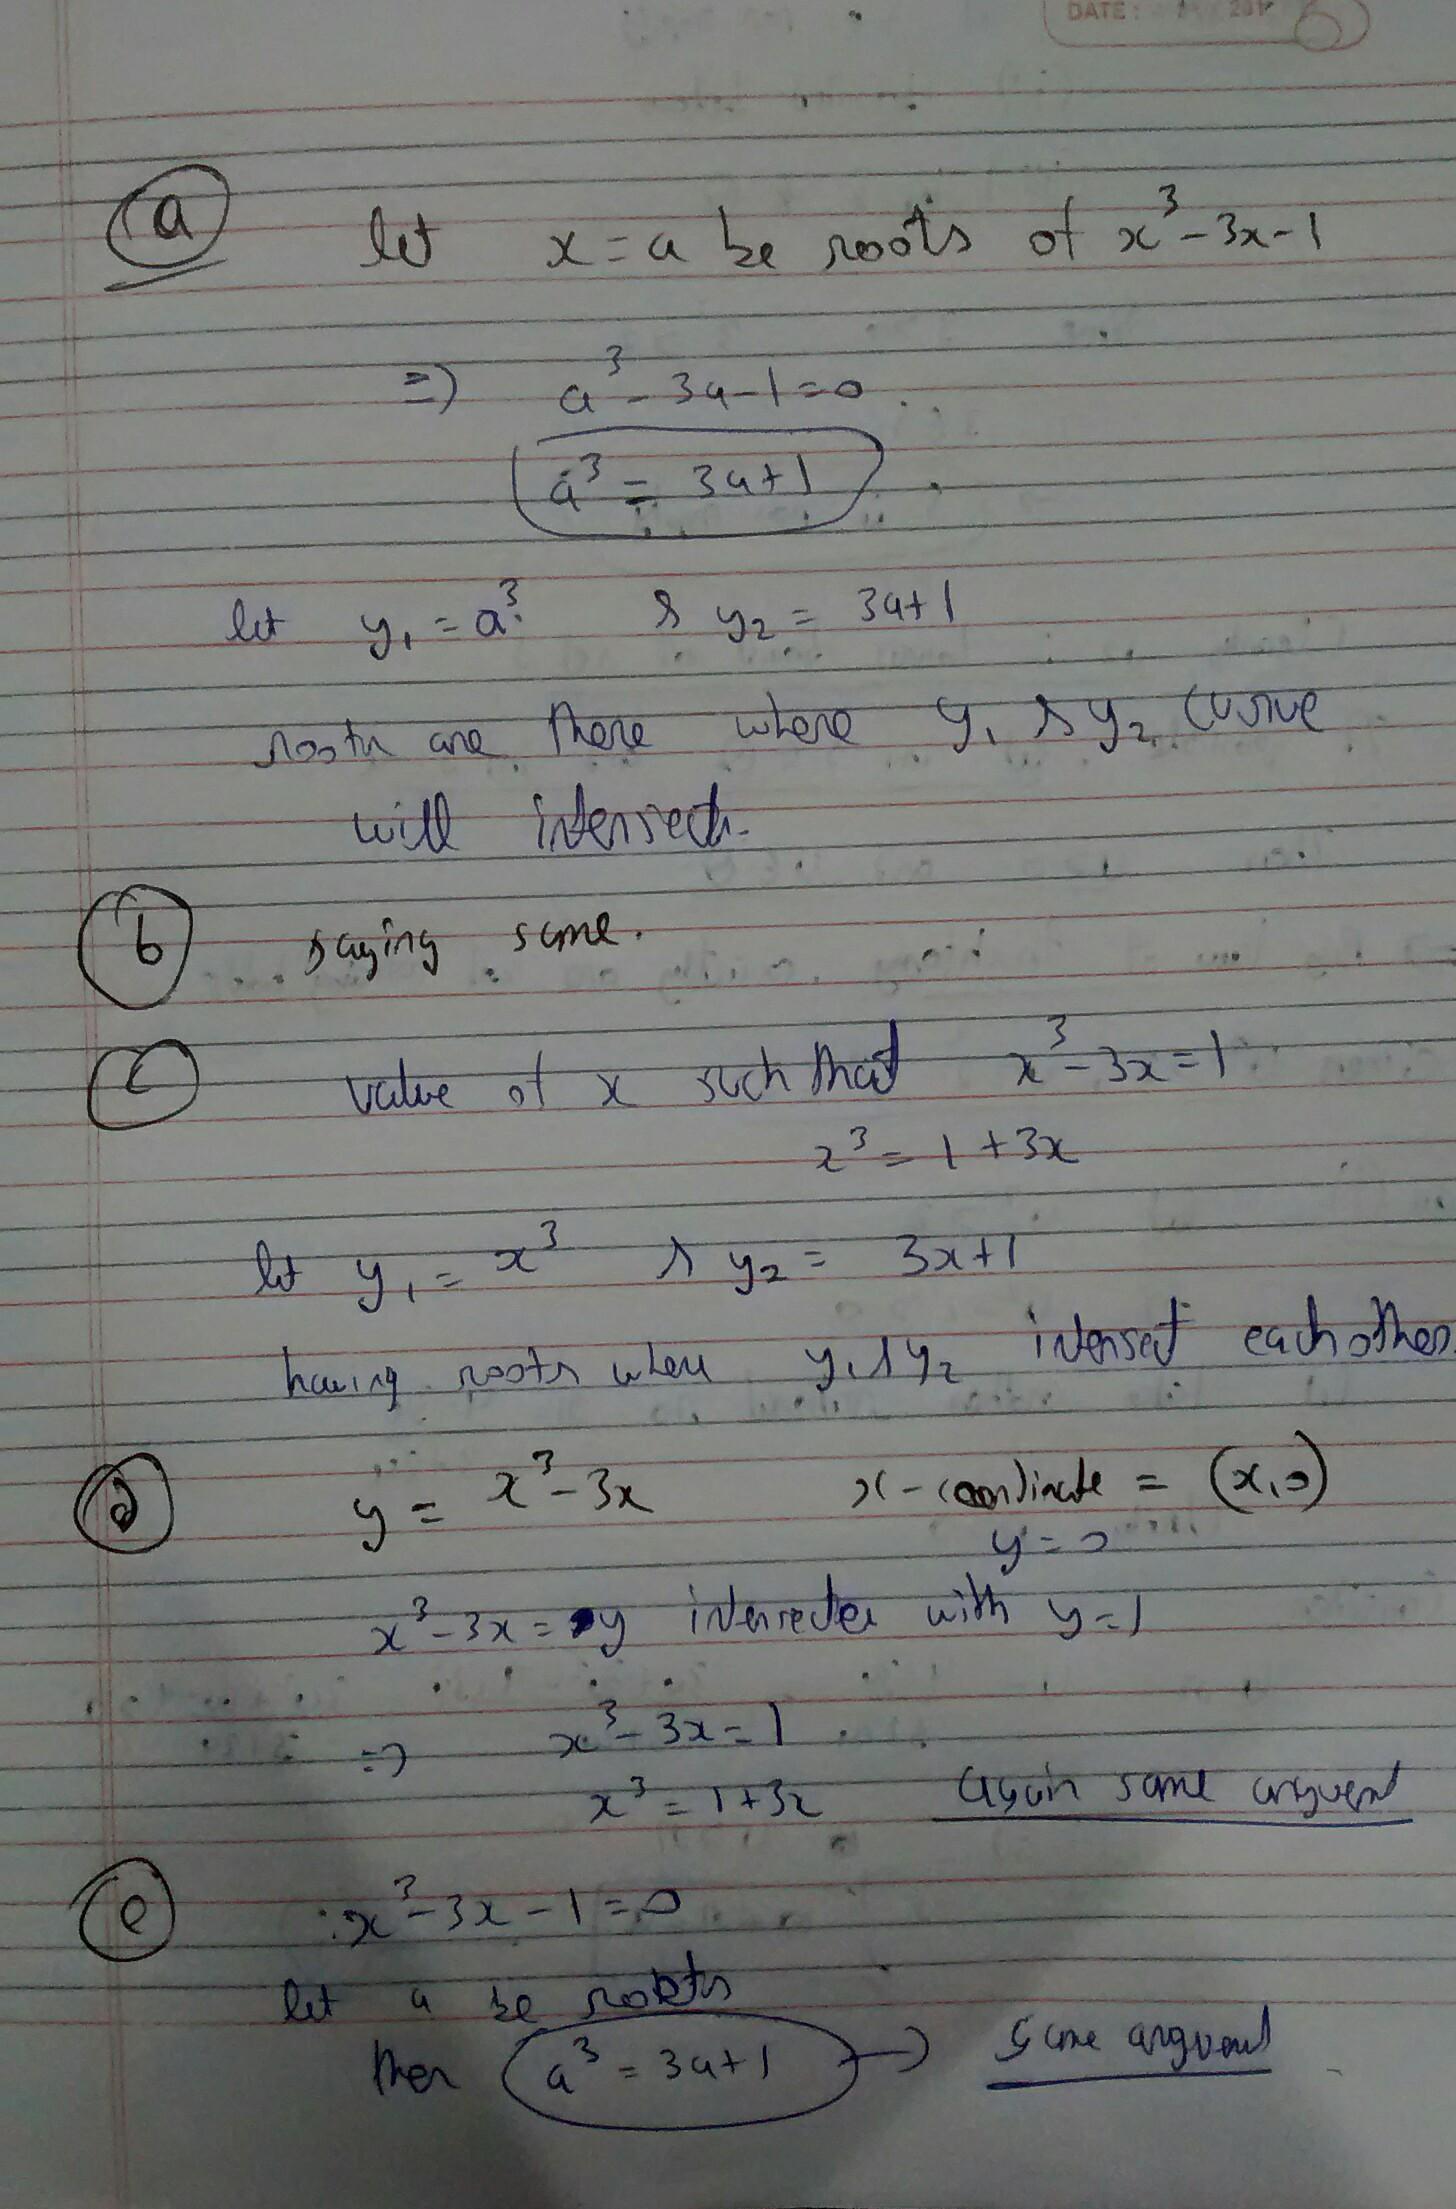 DATE:
(a) let x = a be roots of x³-3x-1
=) a³-3a-1=0
a³ = 3a+1
let y₁ = a³ & y₂ = 3a+1
roots are there where y₁ & y₂ curve
will intersect.
(b) saying same.
(c) value of x such that x³-3x=1
x³ = 1+3x
let y₁ = x³ & y₂ = 3x+1
having roots where y₁ & y₂ intersect each other.
(d) y = x³-3x x-coordinate = (x,0)
y=0
x³-3x = y intersectes with y=1
=) x³-3x=1
x³ = 1+3x Again same arguent
(e) x³-3x-1=0
let a be roots
then a³ = 3a+1 → same arguent